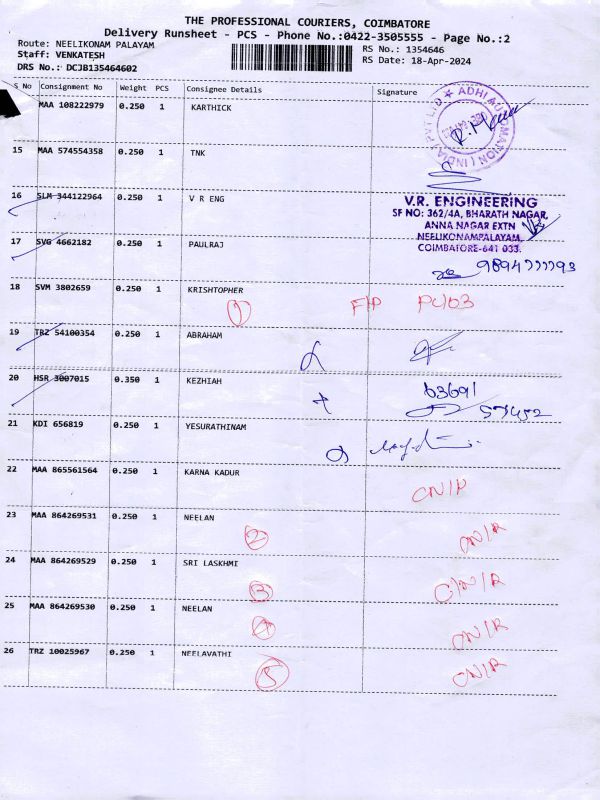 THE PROFESSIONAL COURIERS, COIMBATORE
Delivery Runsheet - PCS - Phone No.:0422-3505555 - Page No.:2
Route: NEELIKONAM PALAYAM
Staff: VENKATESH
DRS No.: DCJB135464602
RS No.: 1354646
RS Date: 18-Apr-2024
S No Consignment No Weight PCS Consignee Details Signature
MAA 108222979 0.250 1 KARTHICK
ADHI AUTOMATION (INDIA) PVT LTD
15 MAA 574554358 0.250 1 TNK
16 SLM 344122964 0.250 1 V R ENG
V.R. ENGINEERING
SF NO: 362/4A, BHARATH NAGAR,
ANNA NAGAR EXTN
NEELIKONAMPALAYAM,
COIMBATORE-641 033.
17 SVG 4662182 0.250 1 PAULRAJ
9894777793
18 SVM 3802659 0.250 1 KRISHTOPHER
1
19 TRZ 54100354 0.250 1 ABRAHAM
20 HSR 3007015 0.350 1 KEZHIAH
63691
57452
21 KDI 656819 0.250 1 YESURATHINAM
22 MAA 865561564 0.250 1 KARNA KADUR
23 MAA 864269531 0.250 1 NEELAN
2 CN/R
24 MAA 864269529 0.250 1 SRI LASKHMI
3 CN/R
25 MAA 864269530 0.250 1 NEELAN
4 CN/R
26 TRZ 10025967 0.250 1 NEELAVATHI
5 CN/R